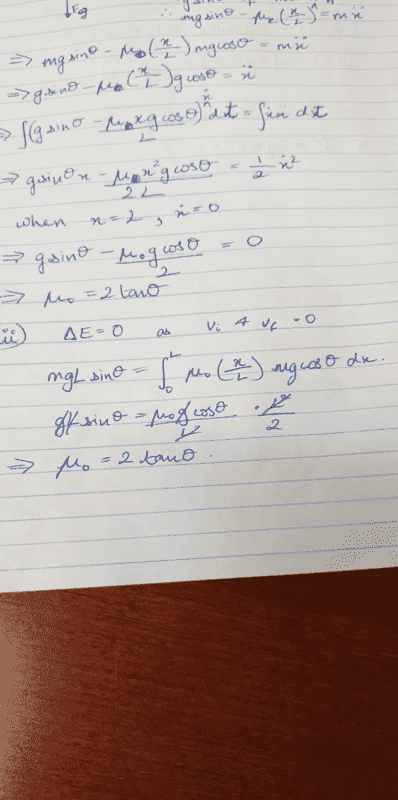 Fg
∴ mg sinθ - μk (x/L)^n = mẍ
⇒ mg sinθ - μ0 (x/L) mg cosθ = mẍ
⇒ g sinθ - μ0 (x/L) g cosθ = ẍ
⇒ ∫(g sinθ - μ0 x g cosθ / L) ẋ dt = ∫ẋẍ dt
⇒ g sinθ x - μ0 x² g cosθ / 2L = 1/2 ẋ²
when x = L, ẋ = 0
⇒ g sinθ - μ0 g cosθ / 2 = 0
⇒ μ0 = 2 tanθ
ii) ΔE = 0 as vi & vf = 0
mgL sinθ = ∫0^L μ0 (x/L) mg cosθ dx.
gL sinθ = μ0 g cosθ / L · L² / 2
⇒ μ0 = 2 tanθ.